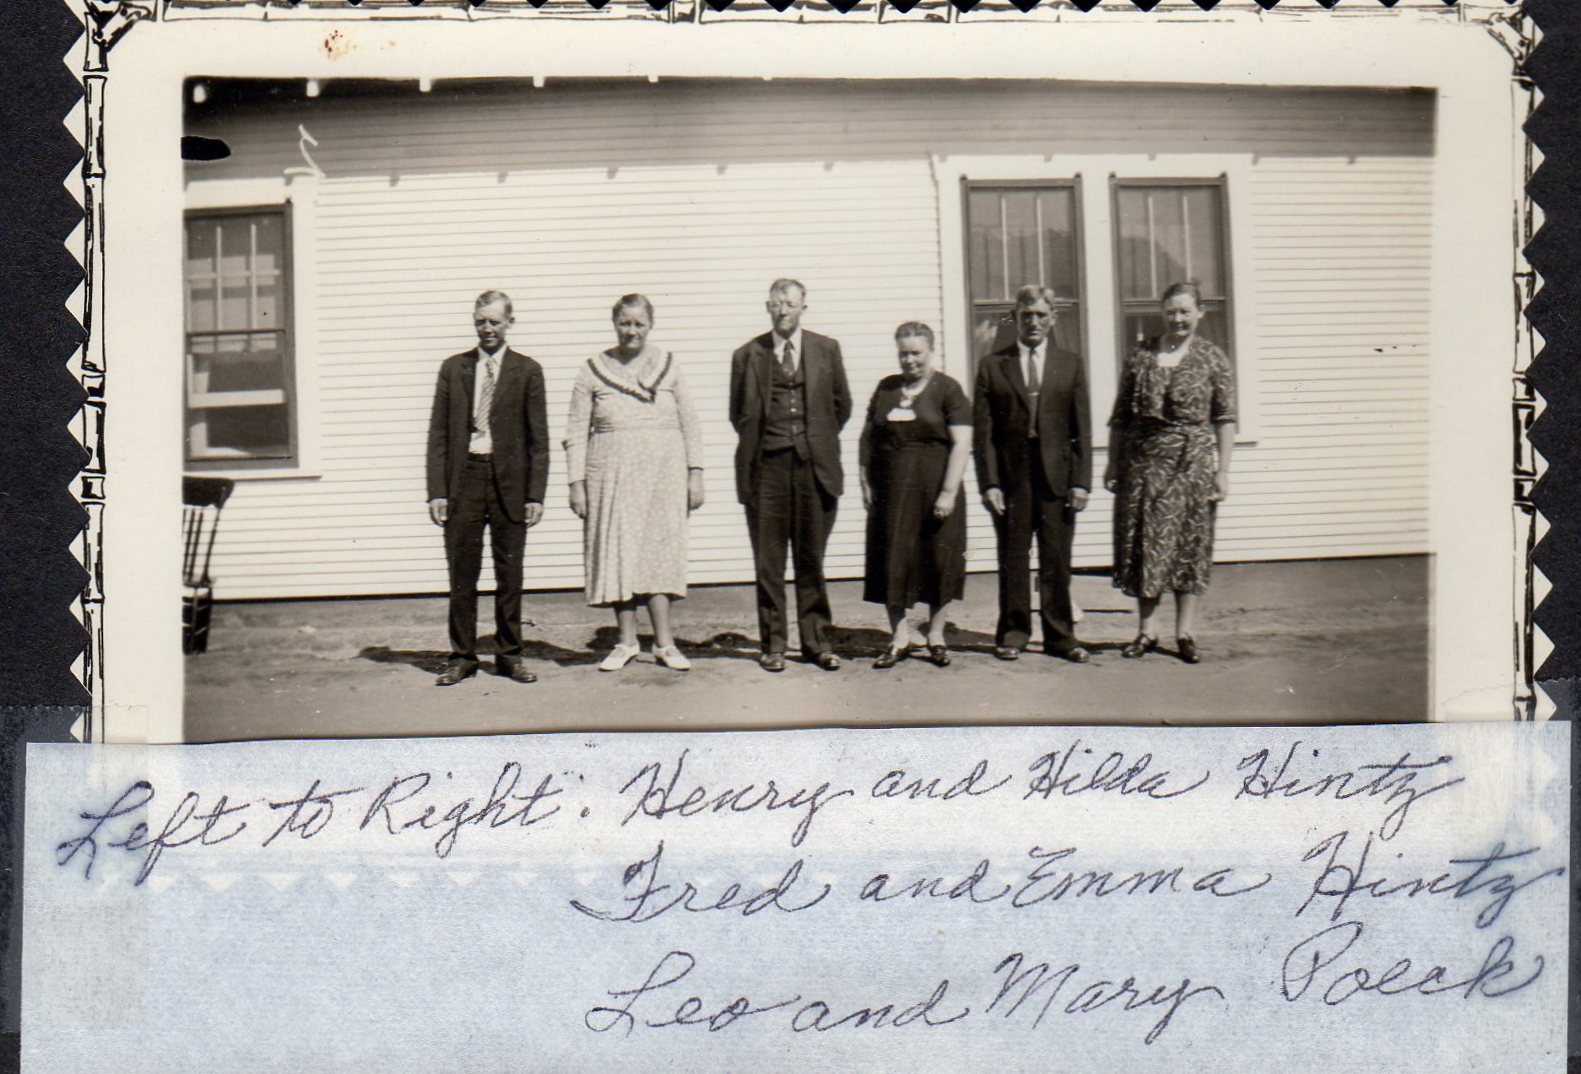 Left to Right: Henry and Hilda Hintz
Fred and Emma Hintz
Leo and Mary Poeck